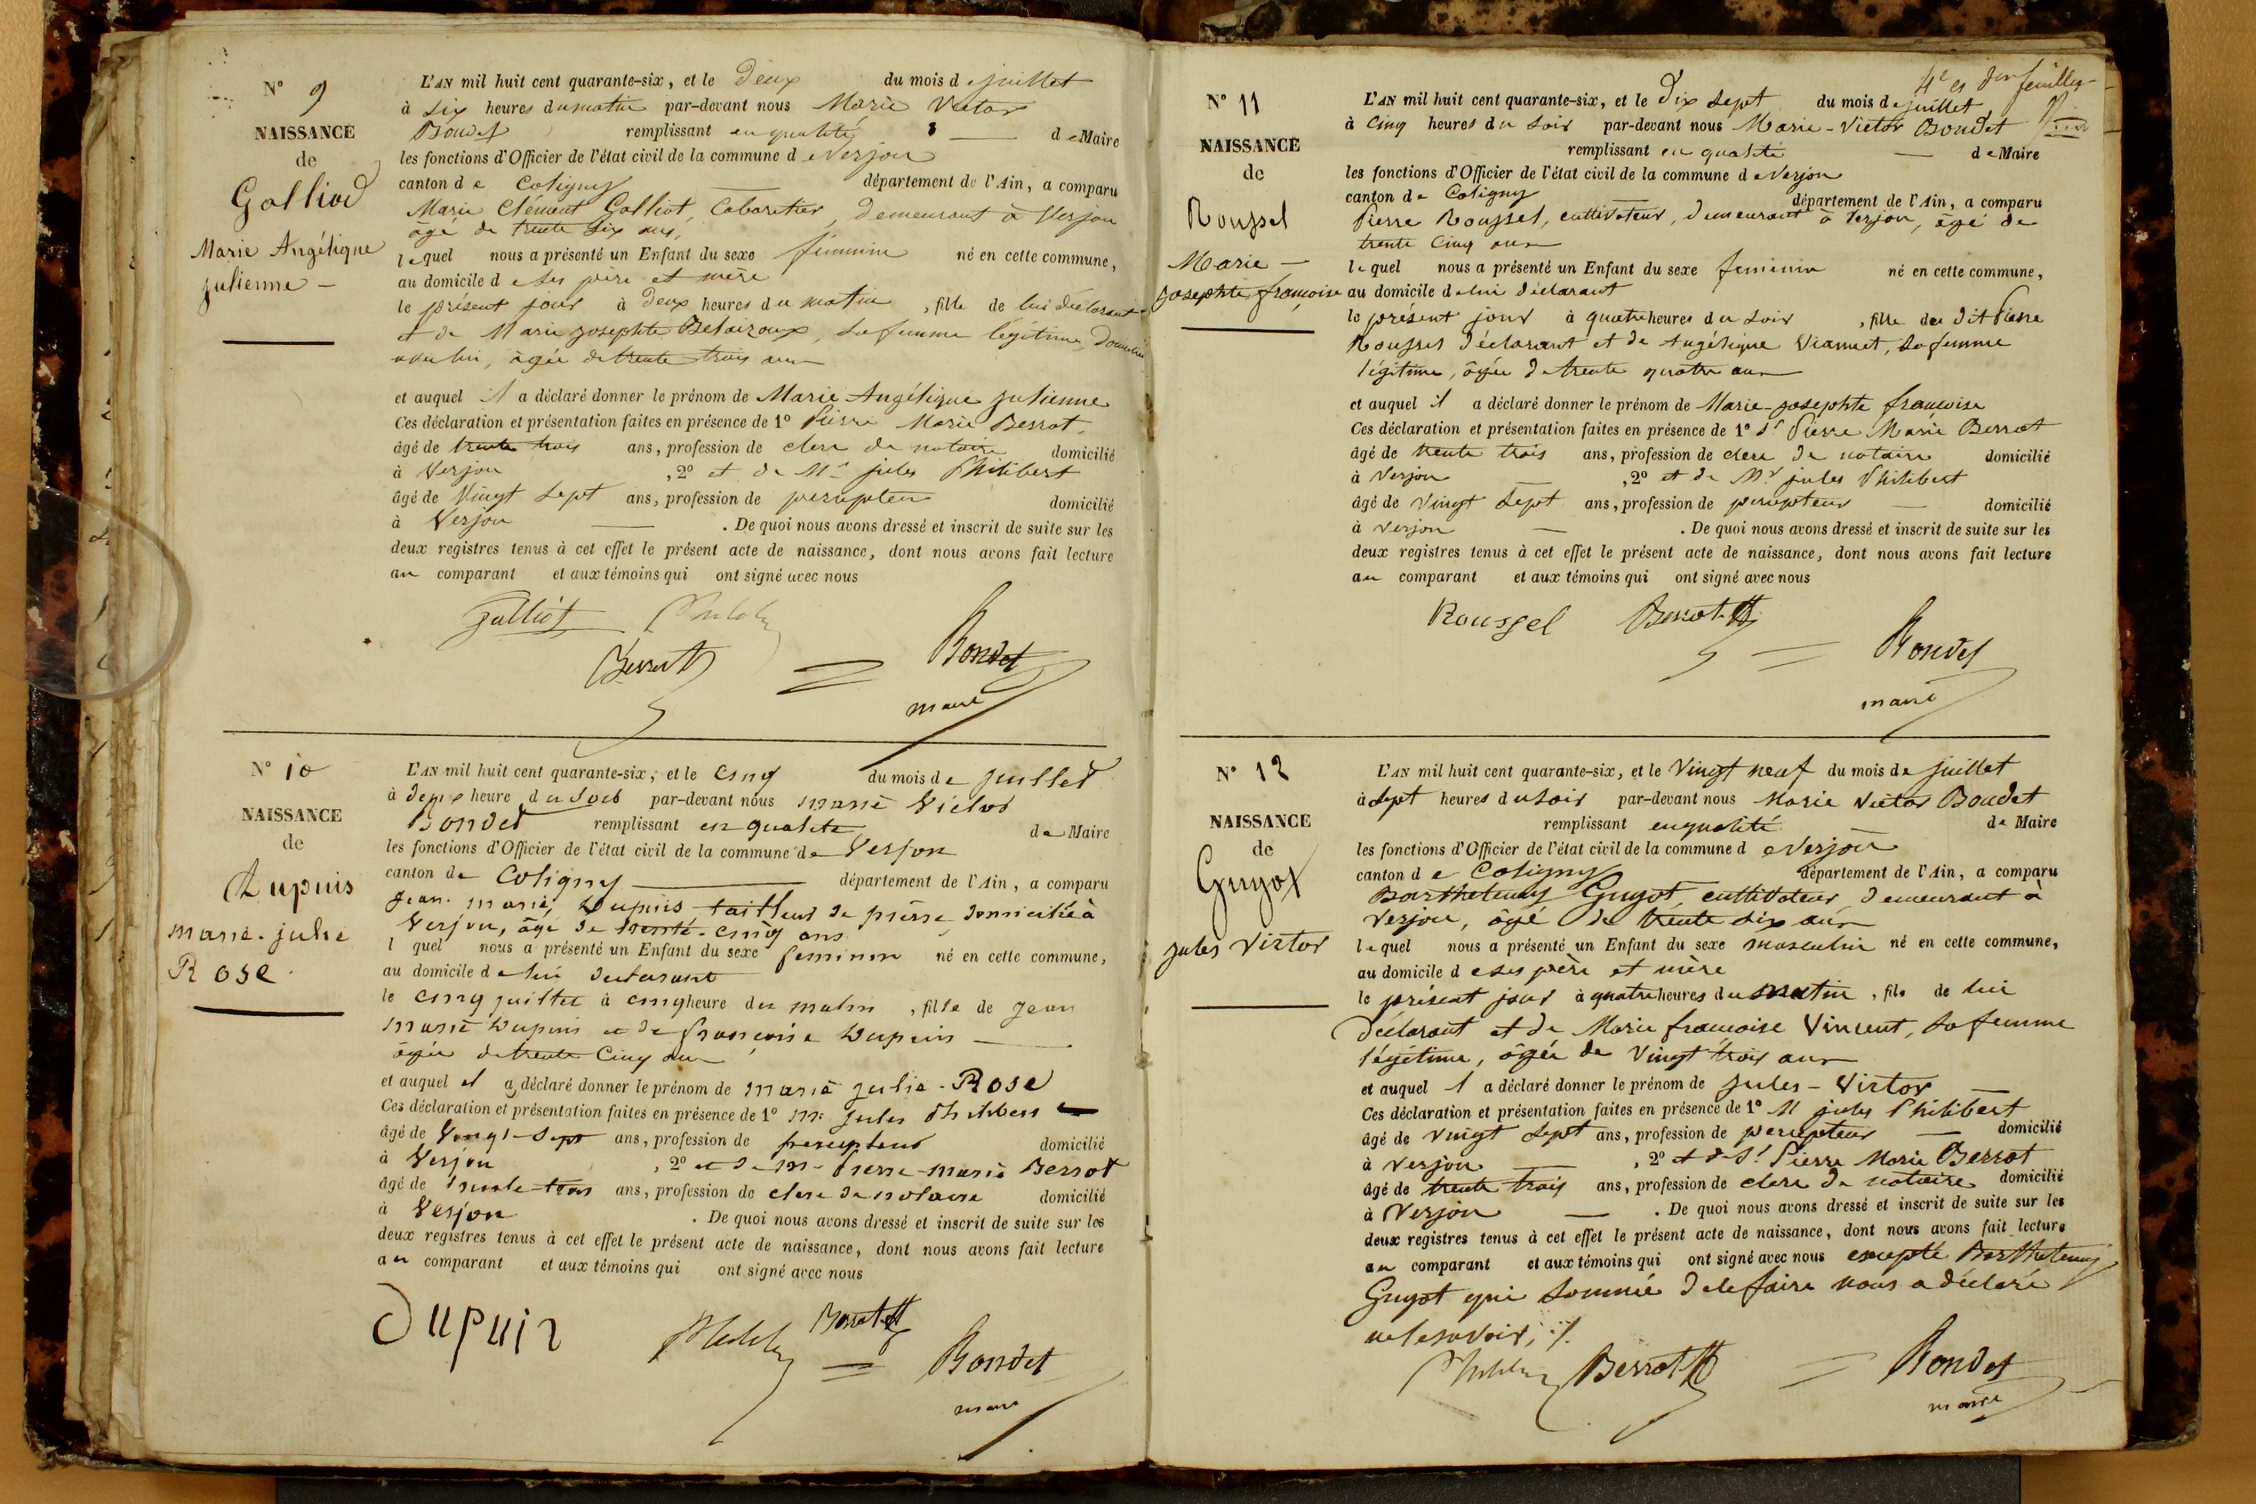 N° 9
NAISSANCE
de
Galliod
Marie Angélique
julienne —
L'AN mil huit cent quarante-six, et le deux du mois de juillet
à six heures du matin par-devant nous Marie Victor
Boudet remplissant en qualité de Maire
les fonctions d'Officier de l'état civil de la commune de Verjon
canton de Coligny — département de l'Ain, a comparu
Marie Clément Galliot, Cabaretier, demeurant à Verjon
âgé de trente six ans,
lequel nous a présenté un Enfant du sexe féminin né en cette commune,
au domicile de ses père et mère
le présent jour à deux heures du matin, fille de lui déclarant
et de Marie josephte, sa femme légitime,
avec lui, âgée de trente trois ans
et auquel il a déclaré donner le prénom de Marie Angélique julienne
Ces déclaration et présentation faites en présence de 1° Pierre Marie Berrot
âgé de trente trois ans, profession de clerc de notaire domicilié
à Verjon, 2° et de Mr jules Philibert
âgé de vingt sept ans, profession de percepteur domicilié
à Verjon — . De quoi nous avons dressé et inscrit de suite sur les
deux registres tenus à cet effet le présent acte de naissance, dont nous avons fait lecture
au comparant et aux témoins qui ont signé avec nous
Galliot
Berrot Boudet
maire
N° 10
NAISSANCE
de
Dupuis
marie. julie
Rose.
L'AN mil huit cent quarante-six, et le cinq du mois de juillet
à heure du soir par-devant nous marie Victor
Boudet remplissant en qualité de Maire
les fonctions d'Officier de l'état civil de la commune de Verjon
canton de Coligny — département de l'Ain, a comparu
jean. marie, Dupuis tailleur de pierre domicilié à
Verjon, âgé de trente-cinq ans
l quel nous a présenté un Enfant du sexe feminin né en cette commune,
au domicile de lui declarant
le cinq juillet à cinq heure du matin, fille de jean
marie Dupuis et de françoise Dupuis —
âgée de trente cinq ans
et auquel il a déclaré donner le prénom de marie julie - Rose
Ces déclaration et présentation faites en présence de 1° mr jules Philibert
âgé de Vingt-sept ans, profession de percepteur domicilié
à Verjon, 2° et de mr Pierre-marie Berrot
âgé de trente-trois ans, profession de clerc de notaire domicilié
à Verjon . De quoi nous avons dressé et inscrit de suite sur les
deux registres tenus à cet effet le présent acte de naissance, dont nous avons fait lecture
au comparant et aux témoins qui ont signé avec nous
Dupuis Berrot Boudet
maire
N° 11
NAISSANCE
de
Roussel
Marie —
josephte françoise
4e et feuillet
L'AN mil huit cent quarante-six, et le dix sept du mois de juillet
à cinq heures du soir par-devant nous Marie-Victor Boudet
remplissant en qualité — de Maire
les fonctions d'Officier de l'état civil de la commune de Verjon
canton de Coligny — département de l'Ain, a comparu
Pierre Roussel, cultivateur, demeurant à Verjon, âgé de
trente cinq ans
lequel nous a présenté un Enfant du sexe feminin né en cette commune,
au domicile de lui déclarant
le présent jour à quatre heures du soir, fille du dit Pierre
Roussel déclarant et de Angélique Viannet, sa femme
légitime, âgée de trente quatre ans
et auquel il a déclaré donner le prénom de Marie-josephte françoise
Ces déclaration et présentation faites en présence de 1° Sr Pierre Marie Berrot
âgé de trente trois ans, profession de clerc de notaire domicilié
à Verjon —, 2° et de Mr jules Philibert
âgé de vingt sept ans, profession de percepteur — domicilié
à Verjon — . De quoi nous avons dressé et inscrit de suite sur les
deux registres tenus à cet effet le présent acte de naissance, dont nous avons fait lecture
au comparant et aux témoins qui ont signé avec nous
Roussel Berrot Boudet
maire
N° 12
NAISSANCE
de
Guyot
jules Victor
L'AN mil huit cent quarante-six, et le vingt neuf du mois de juillet
à sept heures du soir par-devant nous Marie Victor Boudet
remplissant en qualité de Maire
les fonctions d'Officier de l'état civil de la commune de Verjon
canton de Coligny département de l'Ain, a comparu
Barthelemy Guyot, cultivateur, demeurant à
Verjon, âgé de trente six ans
lequel nous a présenté un Enfant du sexe masculin né en cette commune,
au domicile de ses père et mère
le présent jour à quatre heures du matin, fils de lui
déclarant et de Marie françoise Vincent, sa femme
légitime, âgée de vingt trois ans
et auquel il a déclaré donner le prénom de jules - Victor —
Ces déclaration et présentation faites en présence de 1° M jules Philibert
âgé de vingt sept ans, profession de percepteur — domicilié
à Verjon —, 2° et de Sr Pierre Marie Berrot
âgé de trente trois ans, profession de clerc de notaire domicilié
à Verjon — . De quoi nous avons dressé et inscrit de suite sur les
deux registres tenus à cet effet le présent acte de naissance, dont nous avons fait lecture
au comparant et aux témoins qui ont signé avec nous excepté Barthelemy
Guyot qui sommé de le faire nous a déclaré
ne le savoir
Berrot Boudet
maire